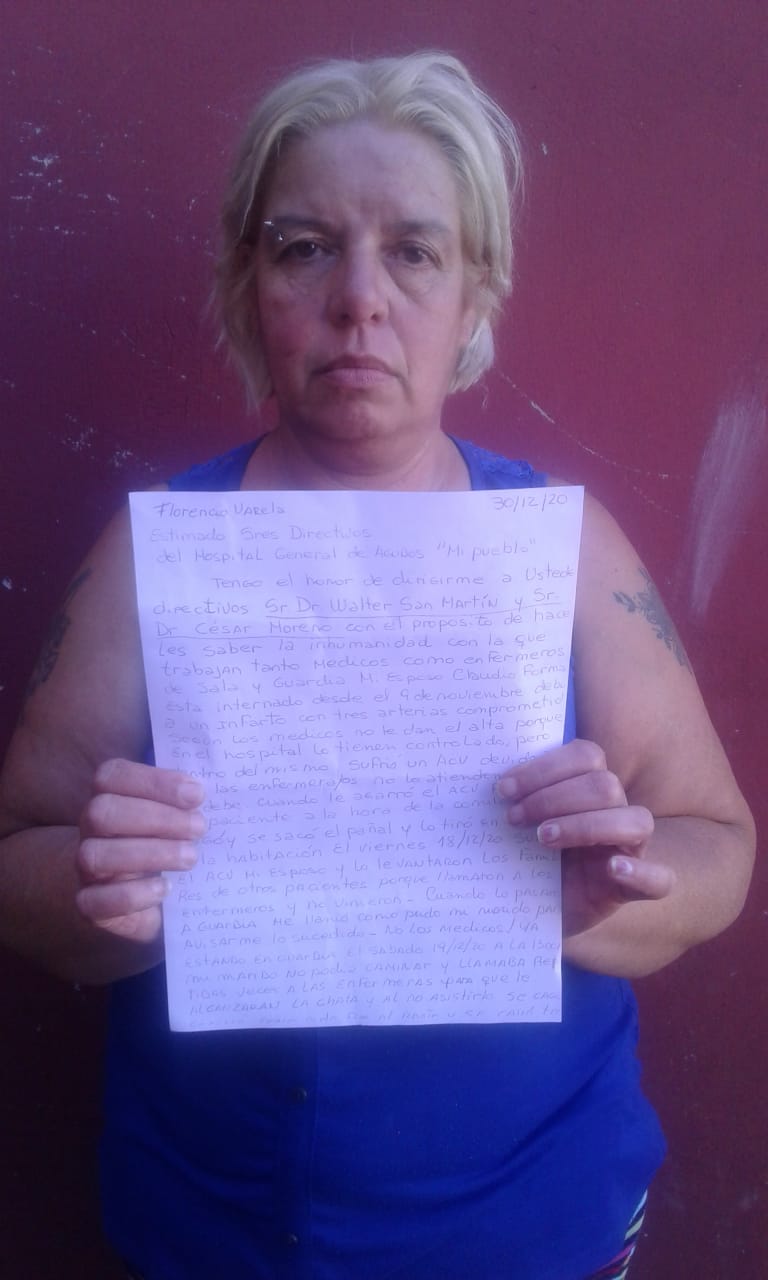 Florencio Varela 30/12/20
Estimado Sres Directivos
del Hospital General de Agudos "Mi pueblo"
Tengo el honor de dirigirme a Ustede
directivos Sr Dr Walter San Martín y Sr.
Dr César Moreno con el proposito de hace
les saber la inhumanidad con la que
trabajan tanto Medicos como enfermeros
de Sala y Guardia M. Esposo Claudio
Esta internado desde el 9 de noviembre deb
a un infarto con tres arterias comprometid
según los medicos no le dan el alta porque
En el hospital lo tienen controlado, pero
entro del mismo sufrió un ACV
las enfermeras/os no le atienden
debe cuando le agarró el ACV
paciente a la hora de la
y se sacó el pañal y lo tiró en
la habitación El viernes 18/12/20
El ACV Mi Esposo y lo levantaron los Famil
Res de otros pacientes porque llamaron a los
enfermeros y no vinieron - Cuando lo
A Guardia me llamó como pudo mi marido par
Avisarme lo sucedido - No los medicos! YA
ESTANDO EN GUARDIA EL SABADO 19/12/20 A LA
mi marido NO podia CAMINAR y LLAMABA REP
TIDAS veces A LAS ENFERMERAS para que le
ALCANZARAN LA CHATA y AL NO ASISTIRLO SE